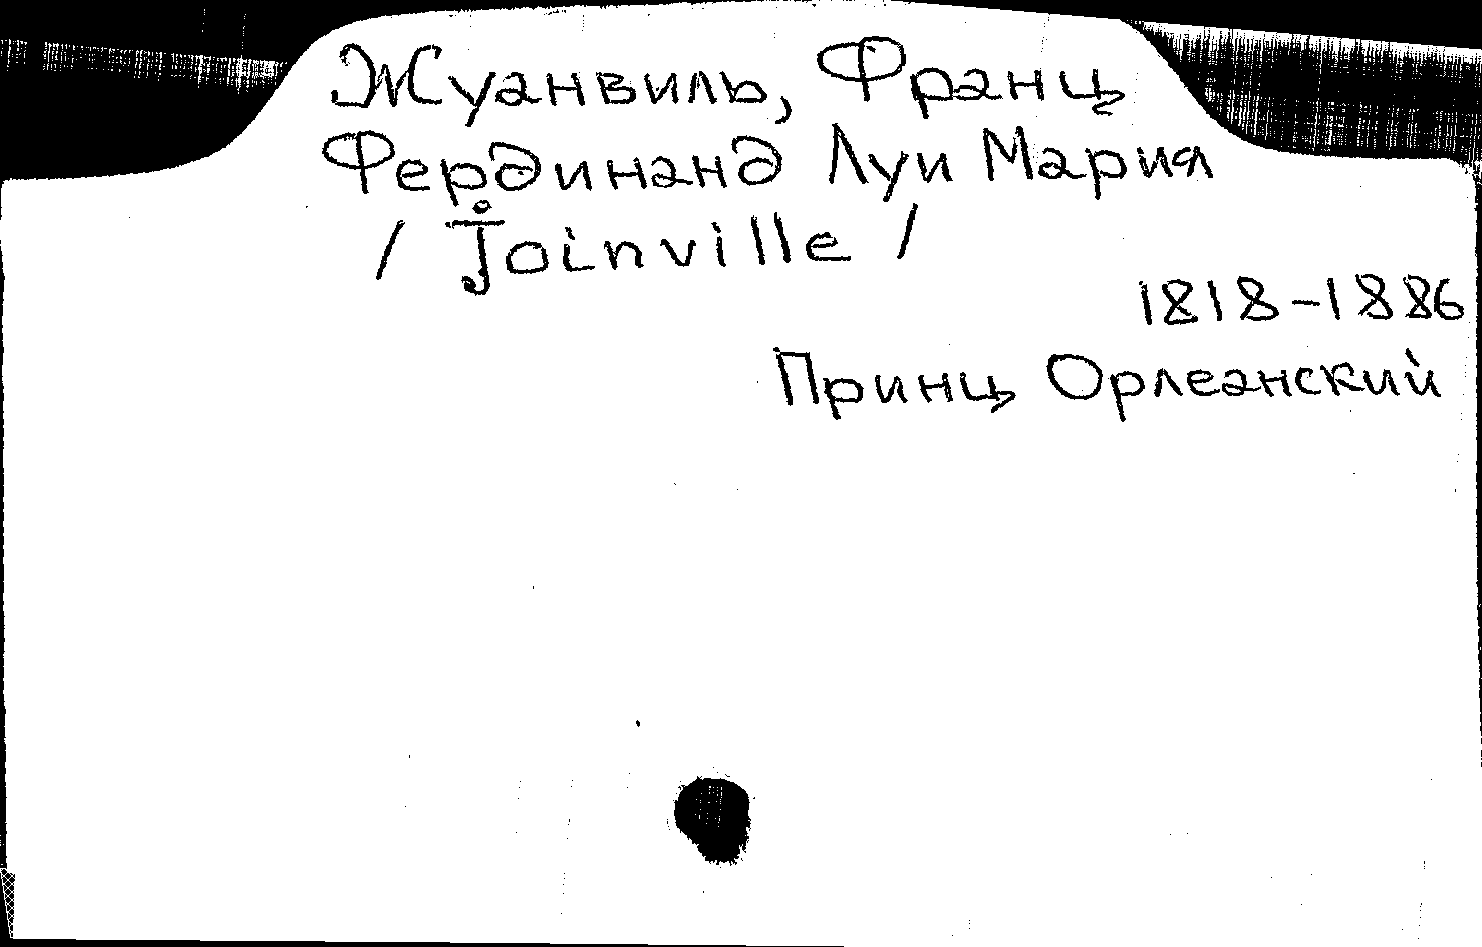 Жуанвиль, Франц
Фердинанд Луи Мария
/ Joinville /
1818-1886
Принц Орлеанский